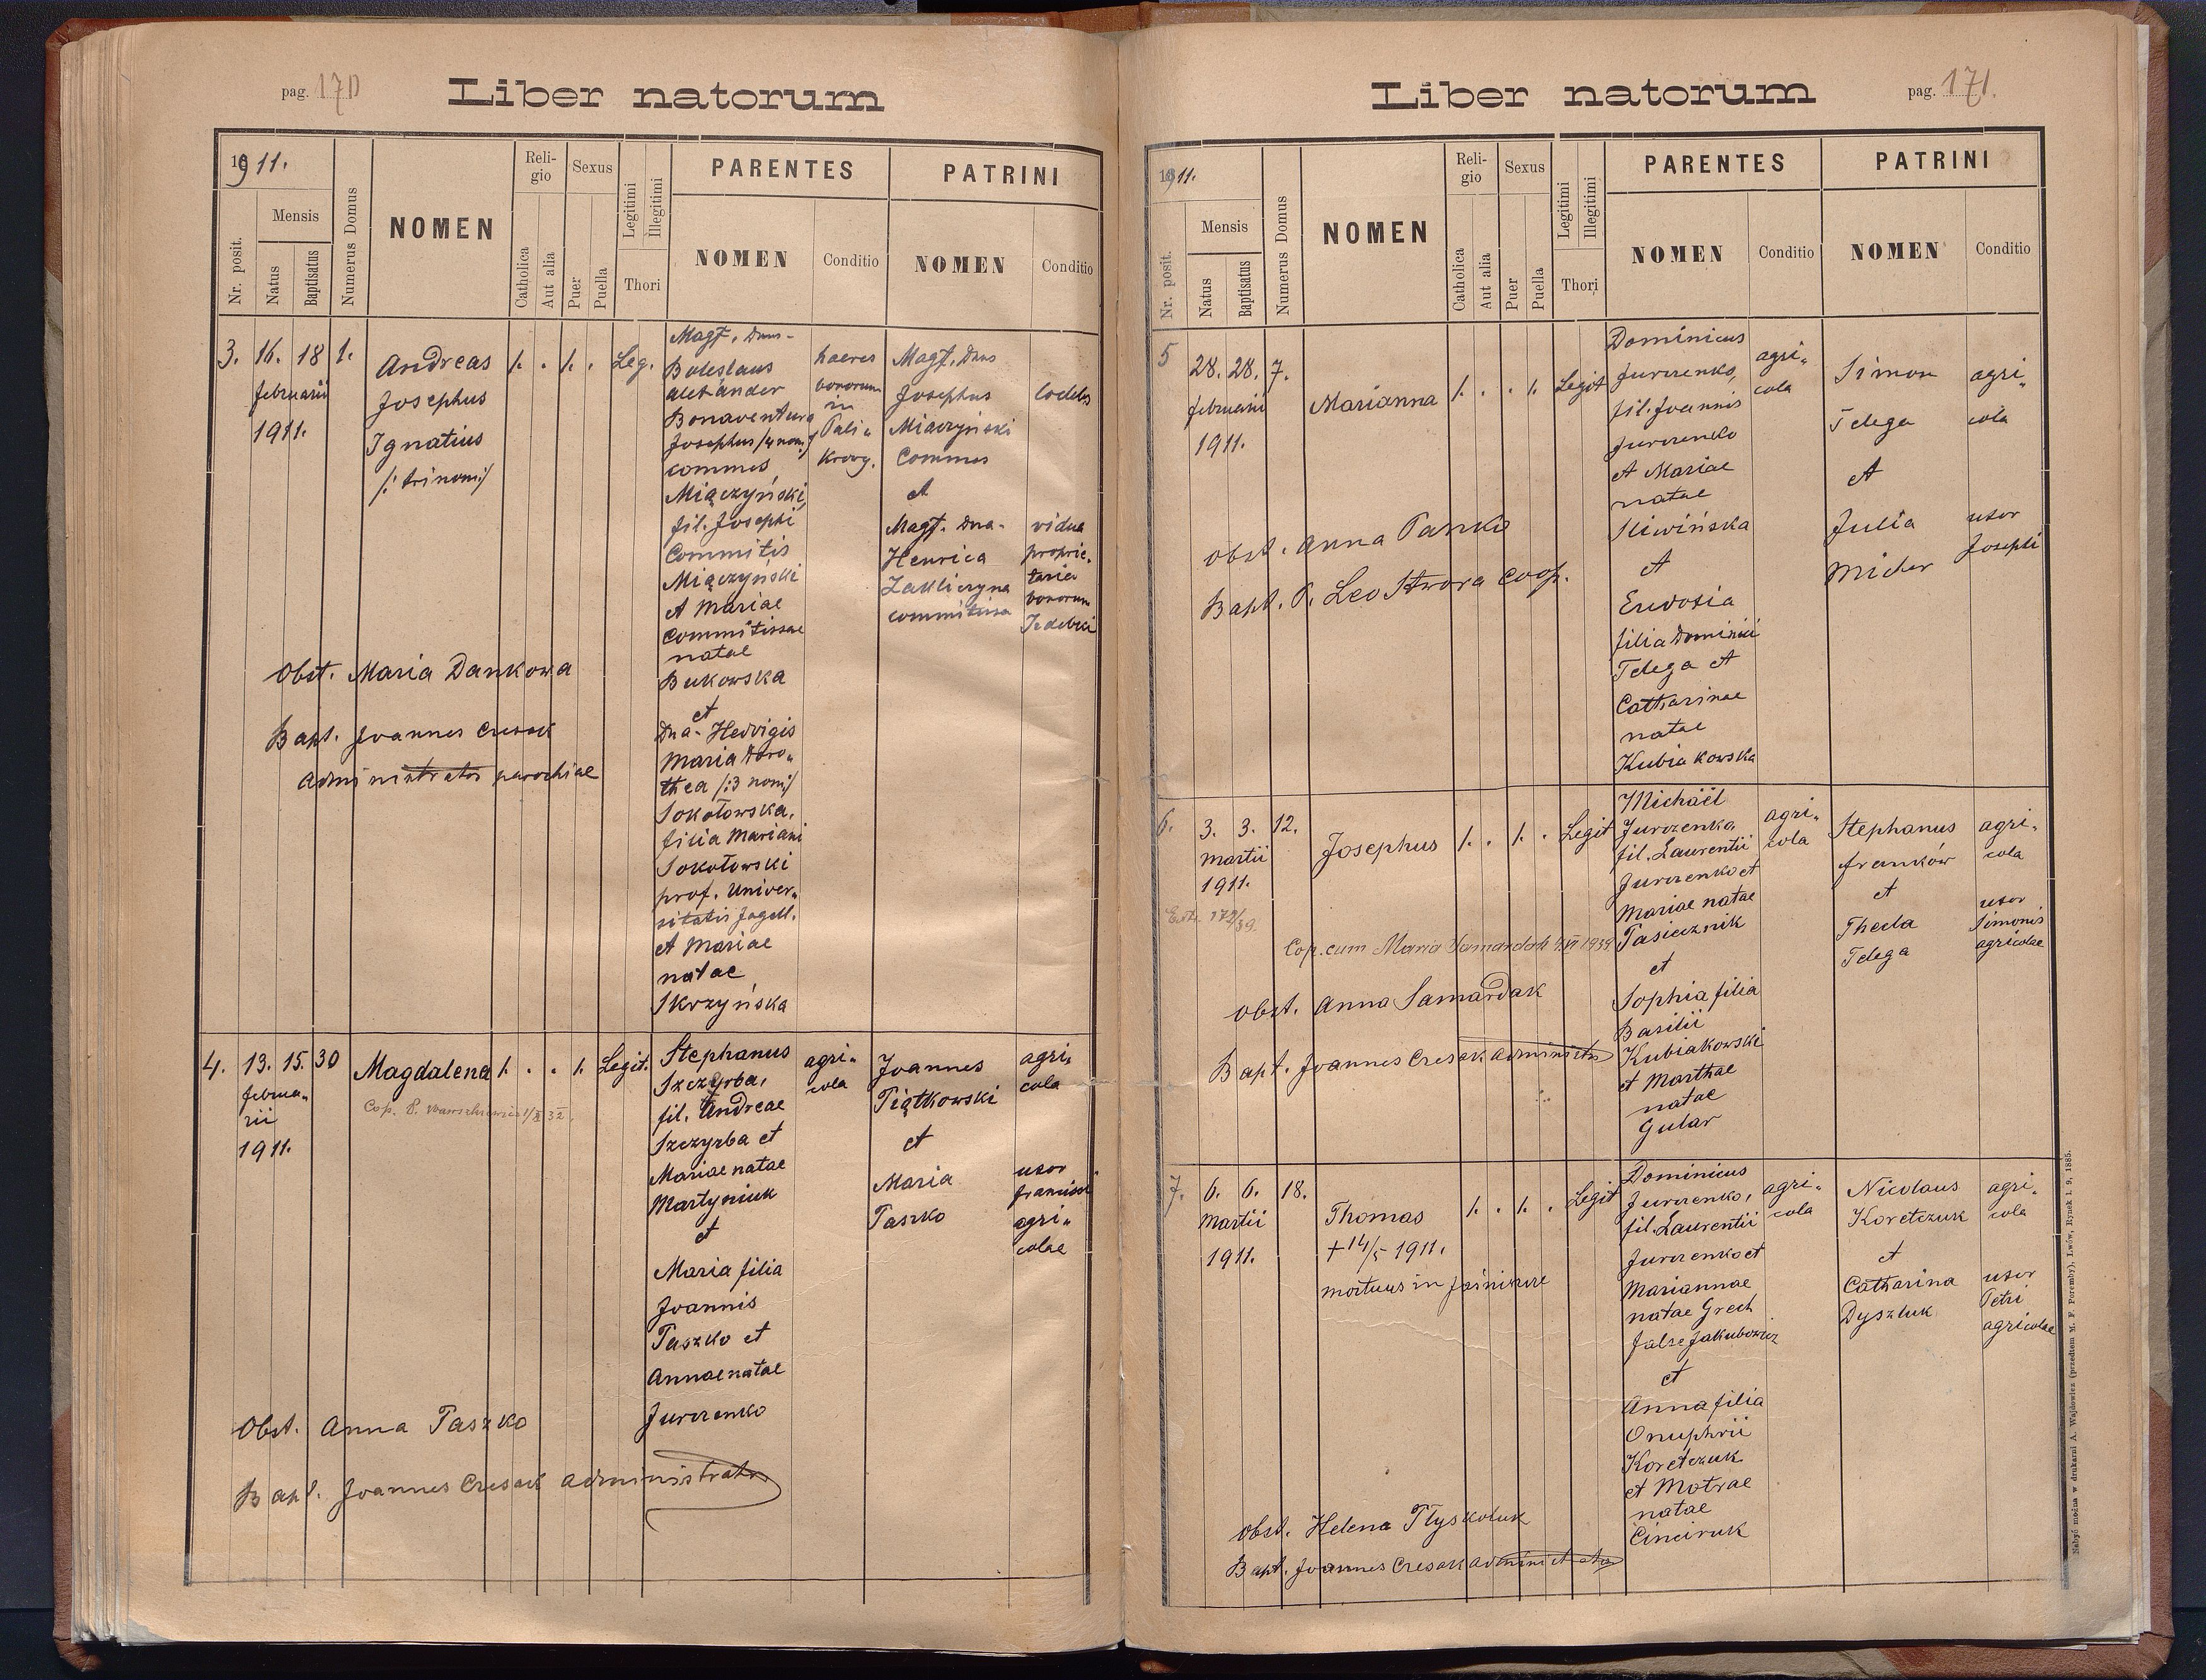 pag. 170
Liber natorum
1911.
Mensis
Nr. posit.
Natus
Baptisatus
Numerus Domus
NOMEN
Religio
Catholica
Aut alia
Sexus
Puer
Puella
Legitimi
Illegitimi
Thori
PARENTES
NOMEN
Conditio
PATRINI
NOMEN
Conditio
3. 16. 18 1.
februarii
1911.
Andreas
Josephus
Ignatius
/: trinom:/
1. . 1. . Leg.
Magf. Dnus-
Boleslaus
Alexander
Bonaventura
Josephus /4 nom:/
commes
Miączyński,
fil. Josephi
Commitis
Miączyński
et Mariae
Commitissae
natae
Bukowska
et
Dna. Hedvigis
Maria Doro„
thea /:3 nom:/
Sokołowska,
filia Mariani
Sokołowski
prof. Univer„
sitatis Jagell.
et Mariae
natae
Skrzyńska
haeres
bonorum
in
Magf. Dnus
Josephus
Miączyński
Commes
et
Magf. Dna.
Henrica
Zakliczyna
commitissa
vidua
proprie-
taria
bonorum
Obst. Maria Dankowa
Bapt. Joannes Cresak
Administrator parochiae
4. 13. 15. 30
februa„
rii
1911.
Magdalena
1. . . 1. Legit.
Stephanus
Szczyrba,
fil. Andreae
Szczyrba et
Mariae natae
Martyniuk
et
Maria filia
Joannis
Paszko et
Annae natae
Jurczenko
agri„
cola
Joannes
Piątkowski
et
Maria
Paszko
agri„
cola
uxor
francisci
agri„
colae
Obst. Anna Paszko
Bapt. Joannes Cresak Administrator
pag. 171.
Liber natorum
1911.
Mensis
Nr. posit.
Natus
Baptisatus
Numerus Domus
NOMEN
Religio
Catholica
Aut alia
Sexus
Puer
Puella
Legitimi
Illegitimi
Thori
PARENTES
NOMEN
Conditio
PATRINI
NOMEN
Conditio
5
28. 28. 7.
februarii
1911.
Marianna
1. . . 1. Legit
Dominicus
Jurczenko,
fil. Joannis
Jurczenko
et Mariae
natae
Sliwińska
et
Eudosia
filia Dominici
Telega et
Catharinae
natae
Kubiakowska
agri„
cola
Simon
Telega
et
Julia
agri„
cola
uxor
Josephi
Obst. Anna Panko
Bapt. P. Leo Stwora coop.
6. 3. 3. 12.
martii
1911.
Josephus
1. . 1. . Legit
Michaël
Jurczenko
fil. Laurentii
Jurczenko et
Mariae natae
Pasiecznik
et
Sophia filia
Basilii
Kubiakowski
et Marthae
natae
Gular
agri„
cola
Stephanus
franków
et
Thecla
Telega
agri„
cola
uxor
Simonis
agricolae
Cop. cum Maria Samardak
Obst. Anna Samardak
Bapt. Joannes Cresak Administr
7. 6. 6. 18.
Martii
1911.
Thomas
+ 14/5 1911.
mortuus in
1. . 1. . Legit
Dominicus
Jurczenko,
fil. Laurentii
Jurczenko et
Mariannae
natae Grech
false Jakubowicz
et
Anna filia
Onuphrii
Koretczuk
et Motrae
natae
Cinciruk
agri„
cola
Nicolaus
Koretczuk
et
Catharina
Dyszluk
agri„
cola
uxor
Petri
agricolae
Obst. Helena
Bapt. Joannes Cresak administrator
Nabyć można w drukarni A. Wajdowicza (przedtem M. F. Poremby), Lwów, Rynek l. 9, 1885.